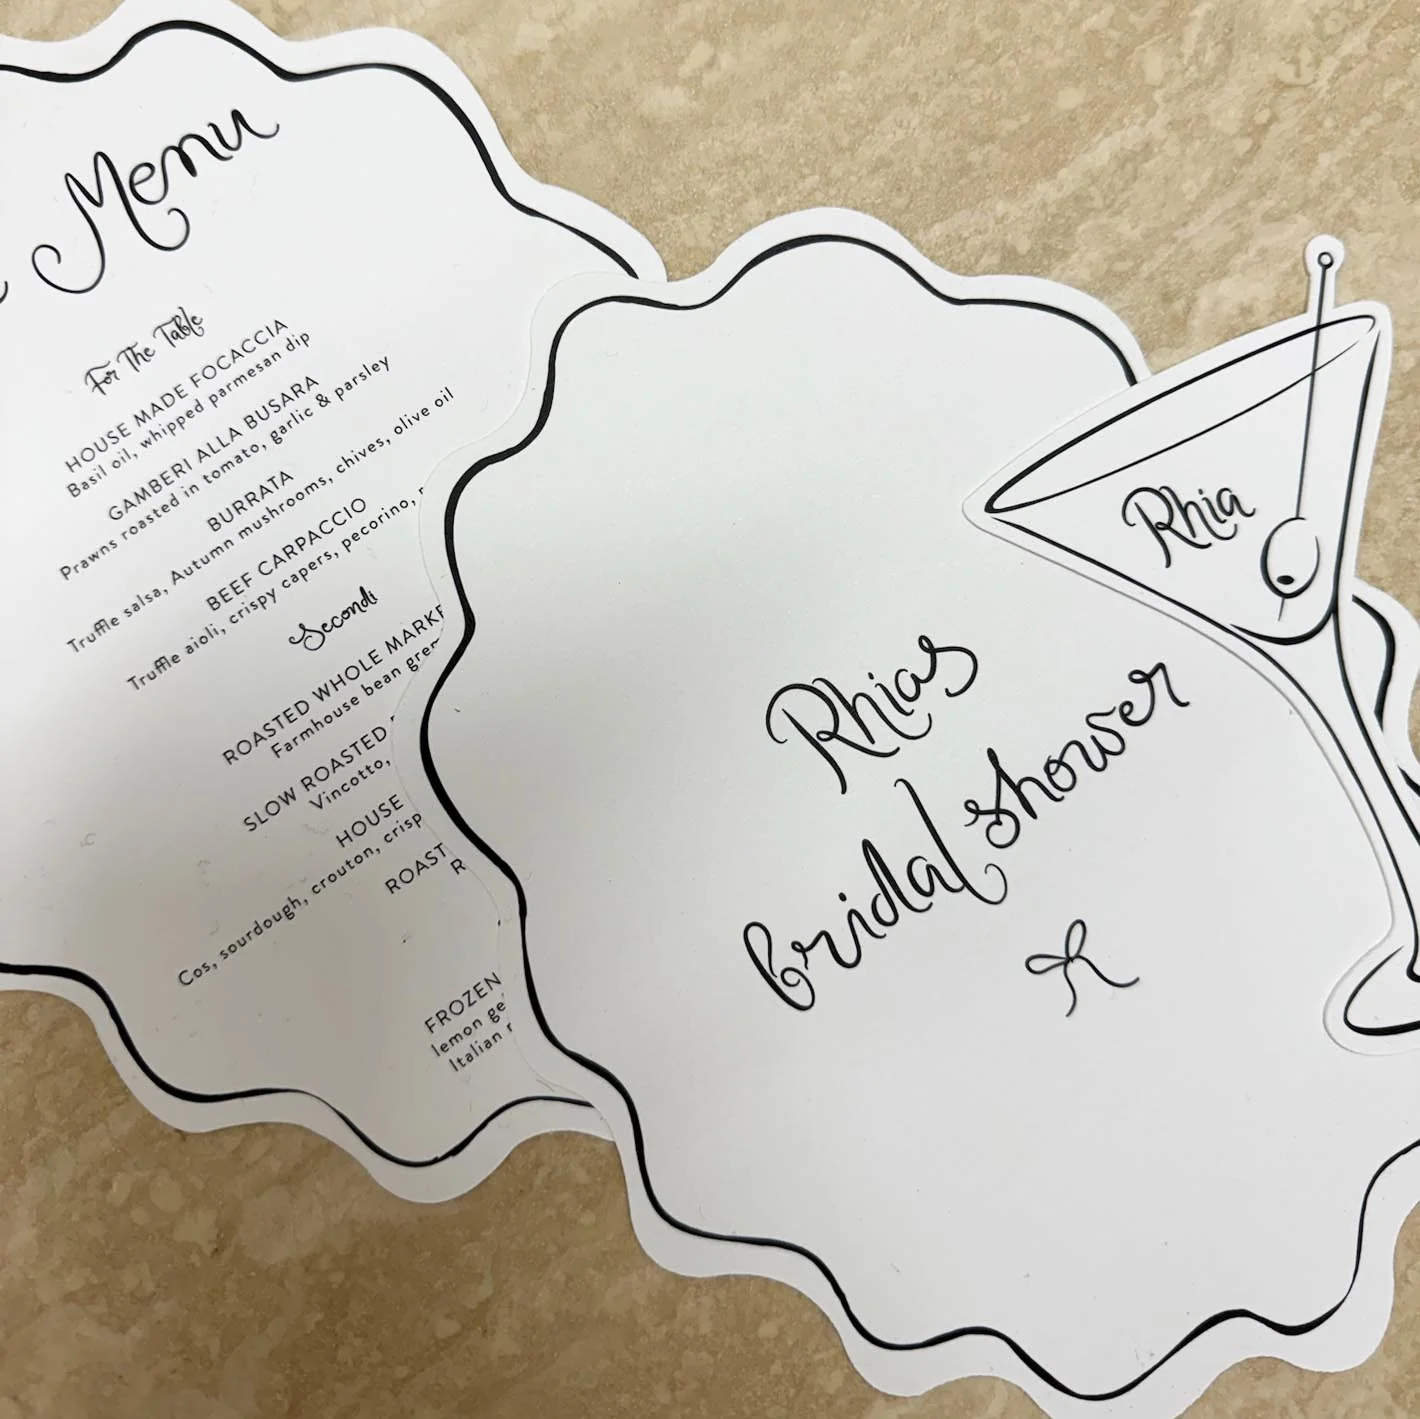 Menu
For The Table
HOUSE MADE FOCACCIA
Basil oil, whipped parmesan dip
GAMBERI ALLA BUSARA
Prawns roasted in tomato, garlic & parsley
BURRATA
Truffle salsa, Autumn mushrooms, chives, olive oil
BEEF CARPACCIO
Truffle aioli, crispy capers, pecorino,
Secondi
ROASTED WHOLE
Farmhouse bean
SLOW ROASTED
Vincotto,
HOUSE
Cos, sourdough, crouton,
ROAST
FROZEN
lemon
Italian
Rhias
bridal shower
Rhia